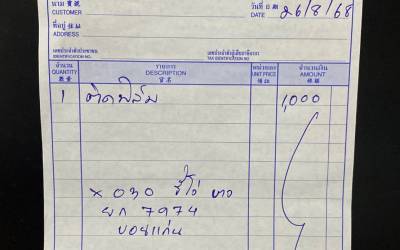 นาม 寶號
CUSTOMER
วันที่ 日期
DATE 26/8/68
ที่อยู่ 住址
ADDRESS
เลขประจำตัวประชาชน
IDENTIFICATION NO.
เลขประจำตัวผู้เสียภาษีอากร
TAX IDENTIFICATION NO.
จำนวน
QUANTITY
數量
รายการ
DESCRIPTION
貨名
หน่วยละ
UNIT PRICE
價銀
จำนวนเงิน
AMOUNT
1 ติดฟิล์ม 1,000
× 030 รีโว่ ขาว
ยก 7974
ขอนแก่น